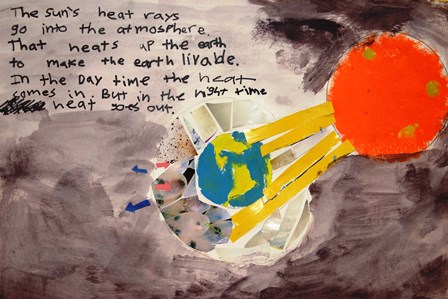 The sun's heat rays
go into the atmosphere.
That heats up the earth
to make the earth livable.
In the Day time the heat
comes in. But in the night time
heat goes out.